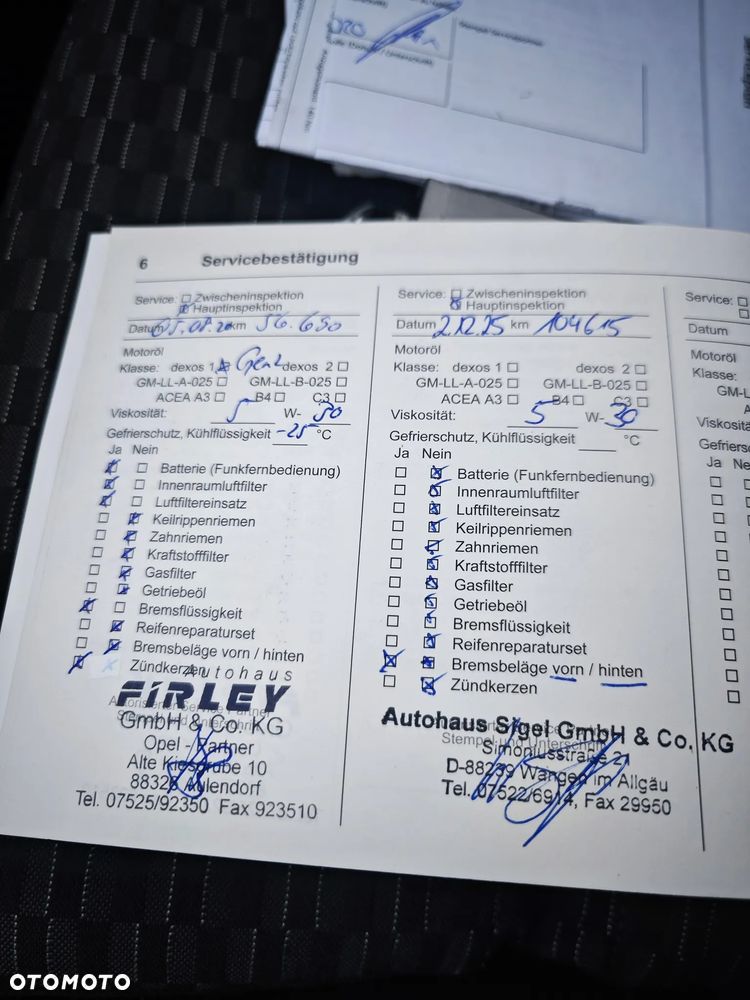 6 Servicebestätigung
Service: ☐ Zwischeninspektion
☒ Hauptinspektion
Datum 05.08.20 km 56.690
Motoröl
Klasse: dexos 1 ☒ Gen2 dexos 2 ☐
GM-LL-A-025 ☐ GM-LL-B-025 ☐
ACEA A3 ☐ B4 ☐ C3 ☐
Viskosität: 5 W- 30
Gefrierschutz, Kühlflüssigkeit -25 °C
Ja Nein
☒ ☐ Batterie (Funkfernbedienung)
☒ ☐ Innenraumluftfilter
☒ ☐ Luftfiltereinsatz
☐ ☒ Keilrippenriemen
☐ ☒ Zahnriemen
☐ ☒ Kraftstofffilter
☐ ☒ Gasfilter
☐ ☒ Getriebeöl
☒ ☐ Bremsflüssigkeit
☐ ☒ Reifenreparaturset
☐ ☒ Bremsbeläge vorn / hinten
☒ Zündkerzen
Autohaus
FIRLEY
GmbH & Co. KG
Opel - Partner
Alte Kiesgrube 10
88326 Aulendorf
Tel. 07525/92350 Fax 923510
Service: ☐ Zwischeninspektion
☒ Hauptinspektion
Datum 2.12.25 km 104615
Motoröl
Klasse: dexos 1 ☐ dexos 2 ☐
GM-LL-A-025 ☐ GM-LL-B-025 ☐
ACEA A3 ☐ B4 ☐ C3 ☐
Viskosität: 5 W- 30
Gefrierschutz, Kühlflüssigkeit °C
Ja Nein
☐ ☒ Batterie (Funkfernbedienung)
☐ ☒ Innenraumluftfilter
☐ ☒ Luftfiltereinsatz
☐ ☒ Keilrippenriemen
☐ ☒ Zahnriemen
☐ ☒ Kraftstofffilter
☐ ☒ Gasfilter
☐ ☒ Getriebeöl
☐ ☒ Bremsflüssigkeit
☐ ☒ Reifenreparaturset
☒ ☒ Bremsbeläge vorn / hinten
☐ ☒ Zündkerzen
Autohaus Sigel GmbH & Co. KG
Stempel und Unterschrift
Simoniusstraße 21
D-88239 Wangen im Allgäu
Tel. 07522/6914, Fax 29950
Service: ☐
Datum
Motoröl
Klasse:
GM-L
Viskosit
Gefriers
Ja Ne
OTOMOTO